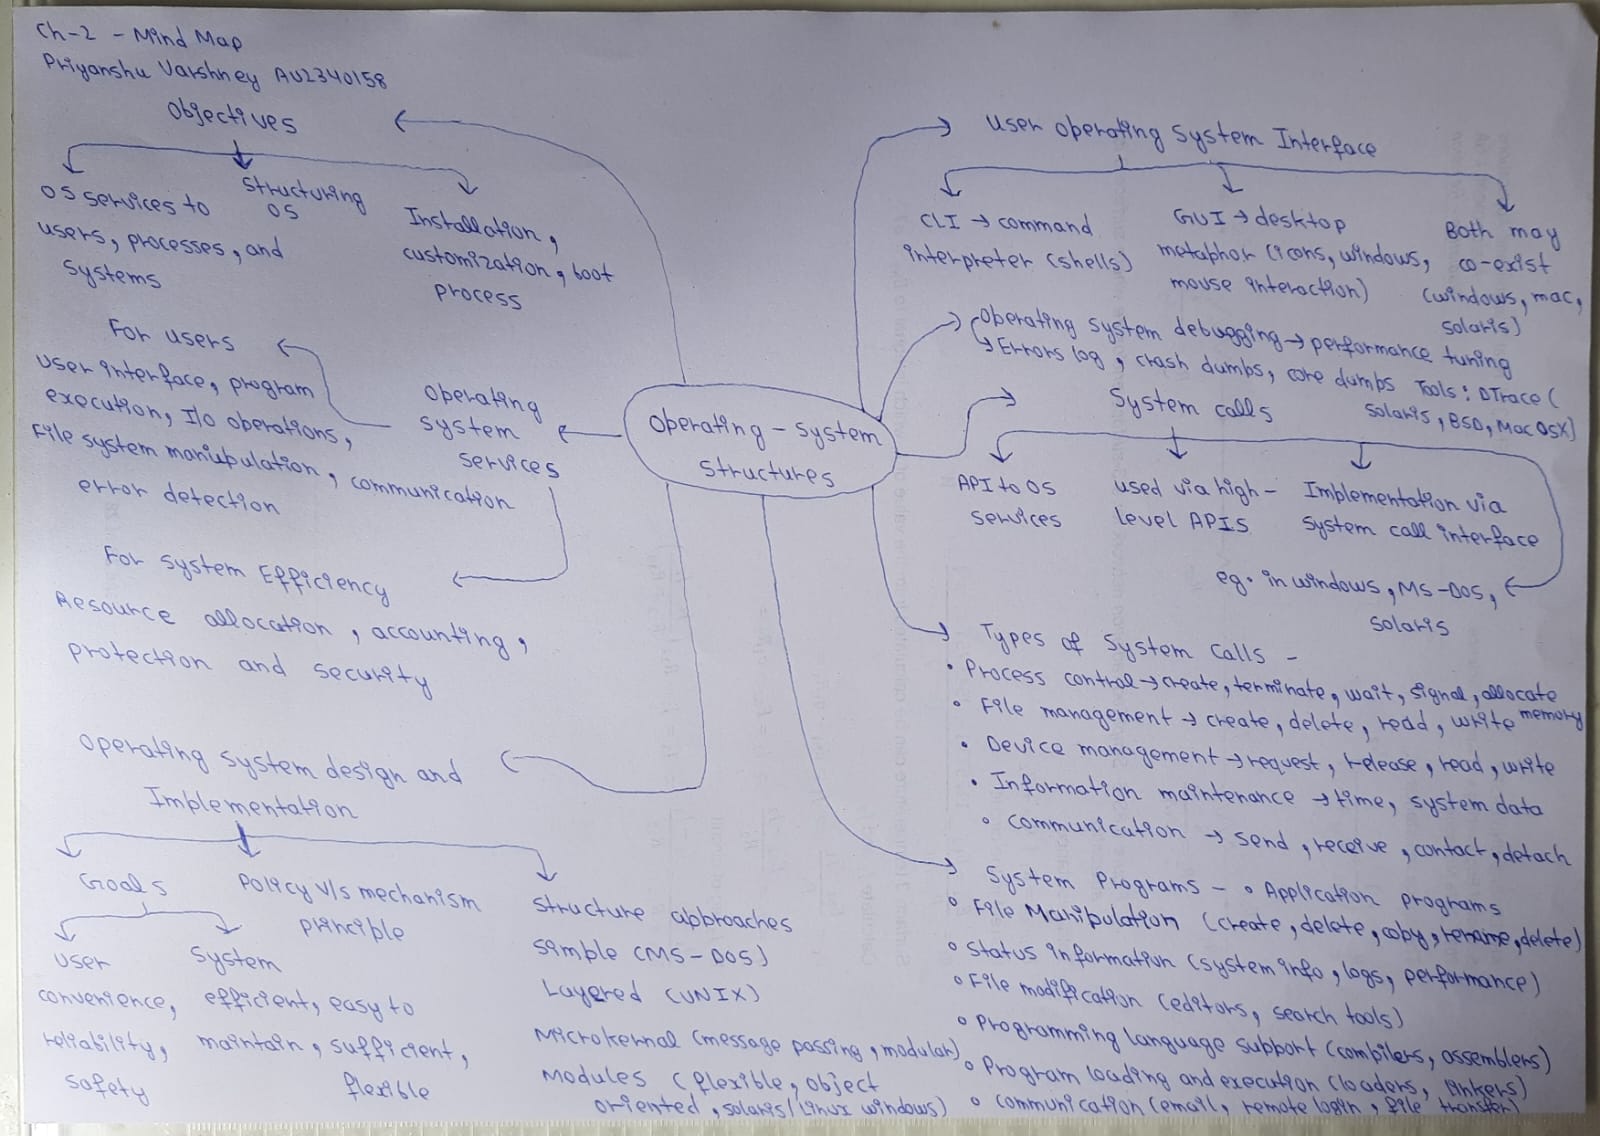 Ch-2 - Mind Map
Priyanshu Varshney AU2340158
Objectives
OS services to
users, processes, and
systems
structuring
OS
Installation,
customization, boot
process
For users
User interface, program
execution, I/O operations,
File system manipulation, communication
error detection
Operating
system
services
For system Efficiency
Resource allocation, accounting,
protection and security
Operating system design and
Implementation
Goals
User
convenience,
reliability,
safety
System
efficient, easy to
maintain, sufficient,
flexible
Policy v/s mechanism
principle
Structure approaches
Simple (MS-DOS)
Layered (UNIX)
Microkernel (message passing, modular)
Modules (flexible, object
oriented, solaris/Linux windows)
Operating-System
Structures
User Operating System Interface
CLI → command
interpreter (shells)
GUI → desktop
metaphor (icons, windows,
mouse interaction)
Both may
co-exist
(windows, mac,
solaris)
Operating system debugging → performance tuning
↳ Errors log, crash dumps, core dumps Tools: DTrace (
solaris, BSD, Mac OSX)
System calls
API to OS
services
used via high-
level APIS
Implementation via
system call interface
eg. in windows, MS-DOS,
solaris
Types of System Calls -
• Process control → create, terminate, wait, signal, allocate
memory
• File management → create, delete, read, write
• Device management → request, release, read, write
• Information maintenance → time, system data
• Communication → send, receive, contact, detach
System Programs - • Application programs
• File Manipulation (create, delete, copy, rename, delete)
• Status information (system info, logs, performance)
• File modification (editors, search tools)
• Programming language support (compilers, assemblers)
• Program loading and execution (loaders, linkers)
• Communication (email, remote login, file transfer)